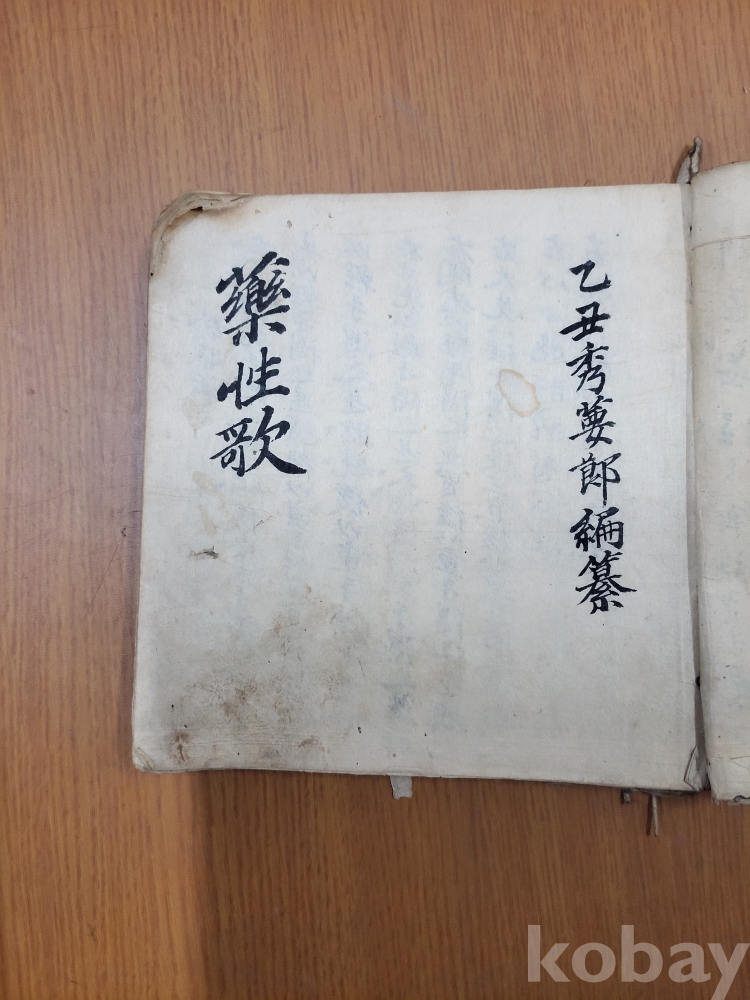 乙丑秀蔓郎編纂
藥性歌
kobay